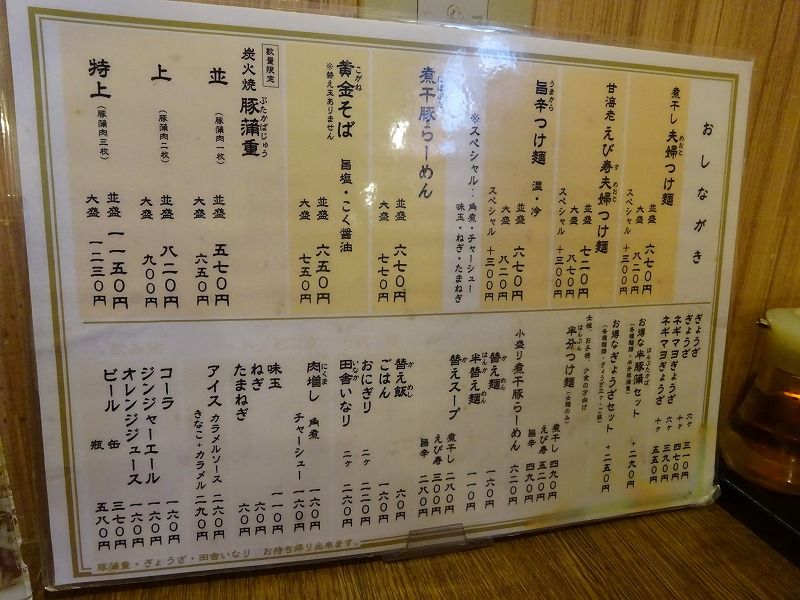 おしながき
煮干し夫婦つけ麺
めおと
並盛 六七〇円
大盛 八二〇円
スペシャル +三〇〇円
甘海老えび寿夫婦つけ麺
す めおと
並盛 七二〇円
大盛 八七〇円
スペシャル +三〇〇円
旨辛つけ麺 温・冷
うまから
並盛 六七〇円
大盛 八二〇円
スペシャル +三〇〇円
※スペシャル:角煮・チャーシュー
味玉・ねぎ・たまねぎ
煮干豚らーめん
並盛 六七〇円
大盛 七七〇円
黄金そば 旨塩・こく醤油
こがね
※替え玉ありません
並盛 六五〇円
大盛 七五〇円
数量限定
炭火焼 豚蒲重
ぶたかばじゅう
並(豚蒲肉一枚)
並盛 五七〇円
大盛 六五〇円
上(豚蒲肉二枚)
並盛 八二〇円
大盛 九〇〇円
特上(豚蒲肉三枚)
並盛 一一五〇円
大盛 一二三〇円
ぎょうざ 六ヶ 三一〇円
ぎょうざ 十ヶ 四七〇円
ネギマヨぎょうざ 六ヶ 三九〇円
ネギマヨぎょうざ 十ヶ 五五〇円
お得な半豚蒲セット +二九〇円
はんぶたかば
お得なぎょうざセット +二五〇円
女性、お子様、少食の方向け
半分つけ麺(全麺のみ)
はんぶん
煮干し 四九〇円
えび寿 五二〇円
旨辛 四九〇円
小盛り煮干豚らーめん 六二〇円
替え麺 一六〇円
か めん
半替え麺 一一〇円
はんか めん
替えスープ
か
煮干し 二八〇円
えび寿 三〇〇円
旨辛 二八〇円
替え飯
か めし
ごはん 一六〇円
おにぎり 二ヶ 二二〇円
田舎いなり 二ヶ 二六〇円
いなか
肉増し 角煮 一六〇円
にくま
チャーシュー 一六〇円
味玉 一一〇円
ねぎ 六〇円
たまねぎ 六〇円
アイス カラメルソース 二六〇円
きなこ+カラメル 二九〇円
コーラ 一六〇円
ジンジャーエール 一六〇円
オレンジジュース 一六〇円
ビール 缶 三七〇円
瓶 五八〇円
豚蒲重・ぎょうざ・田舎いなり お持ち帰り出来ます。